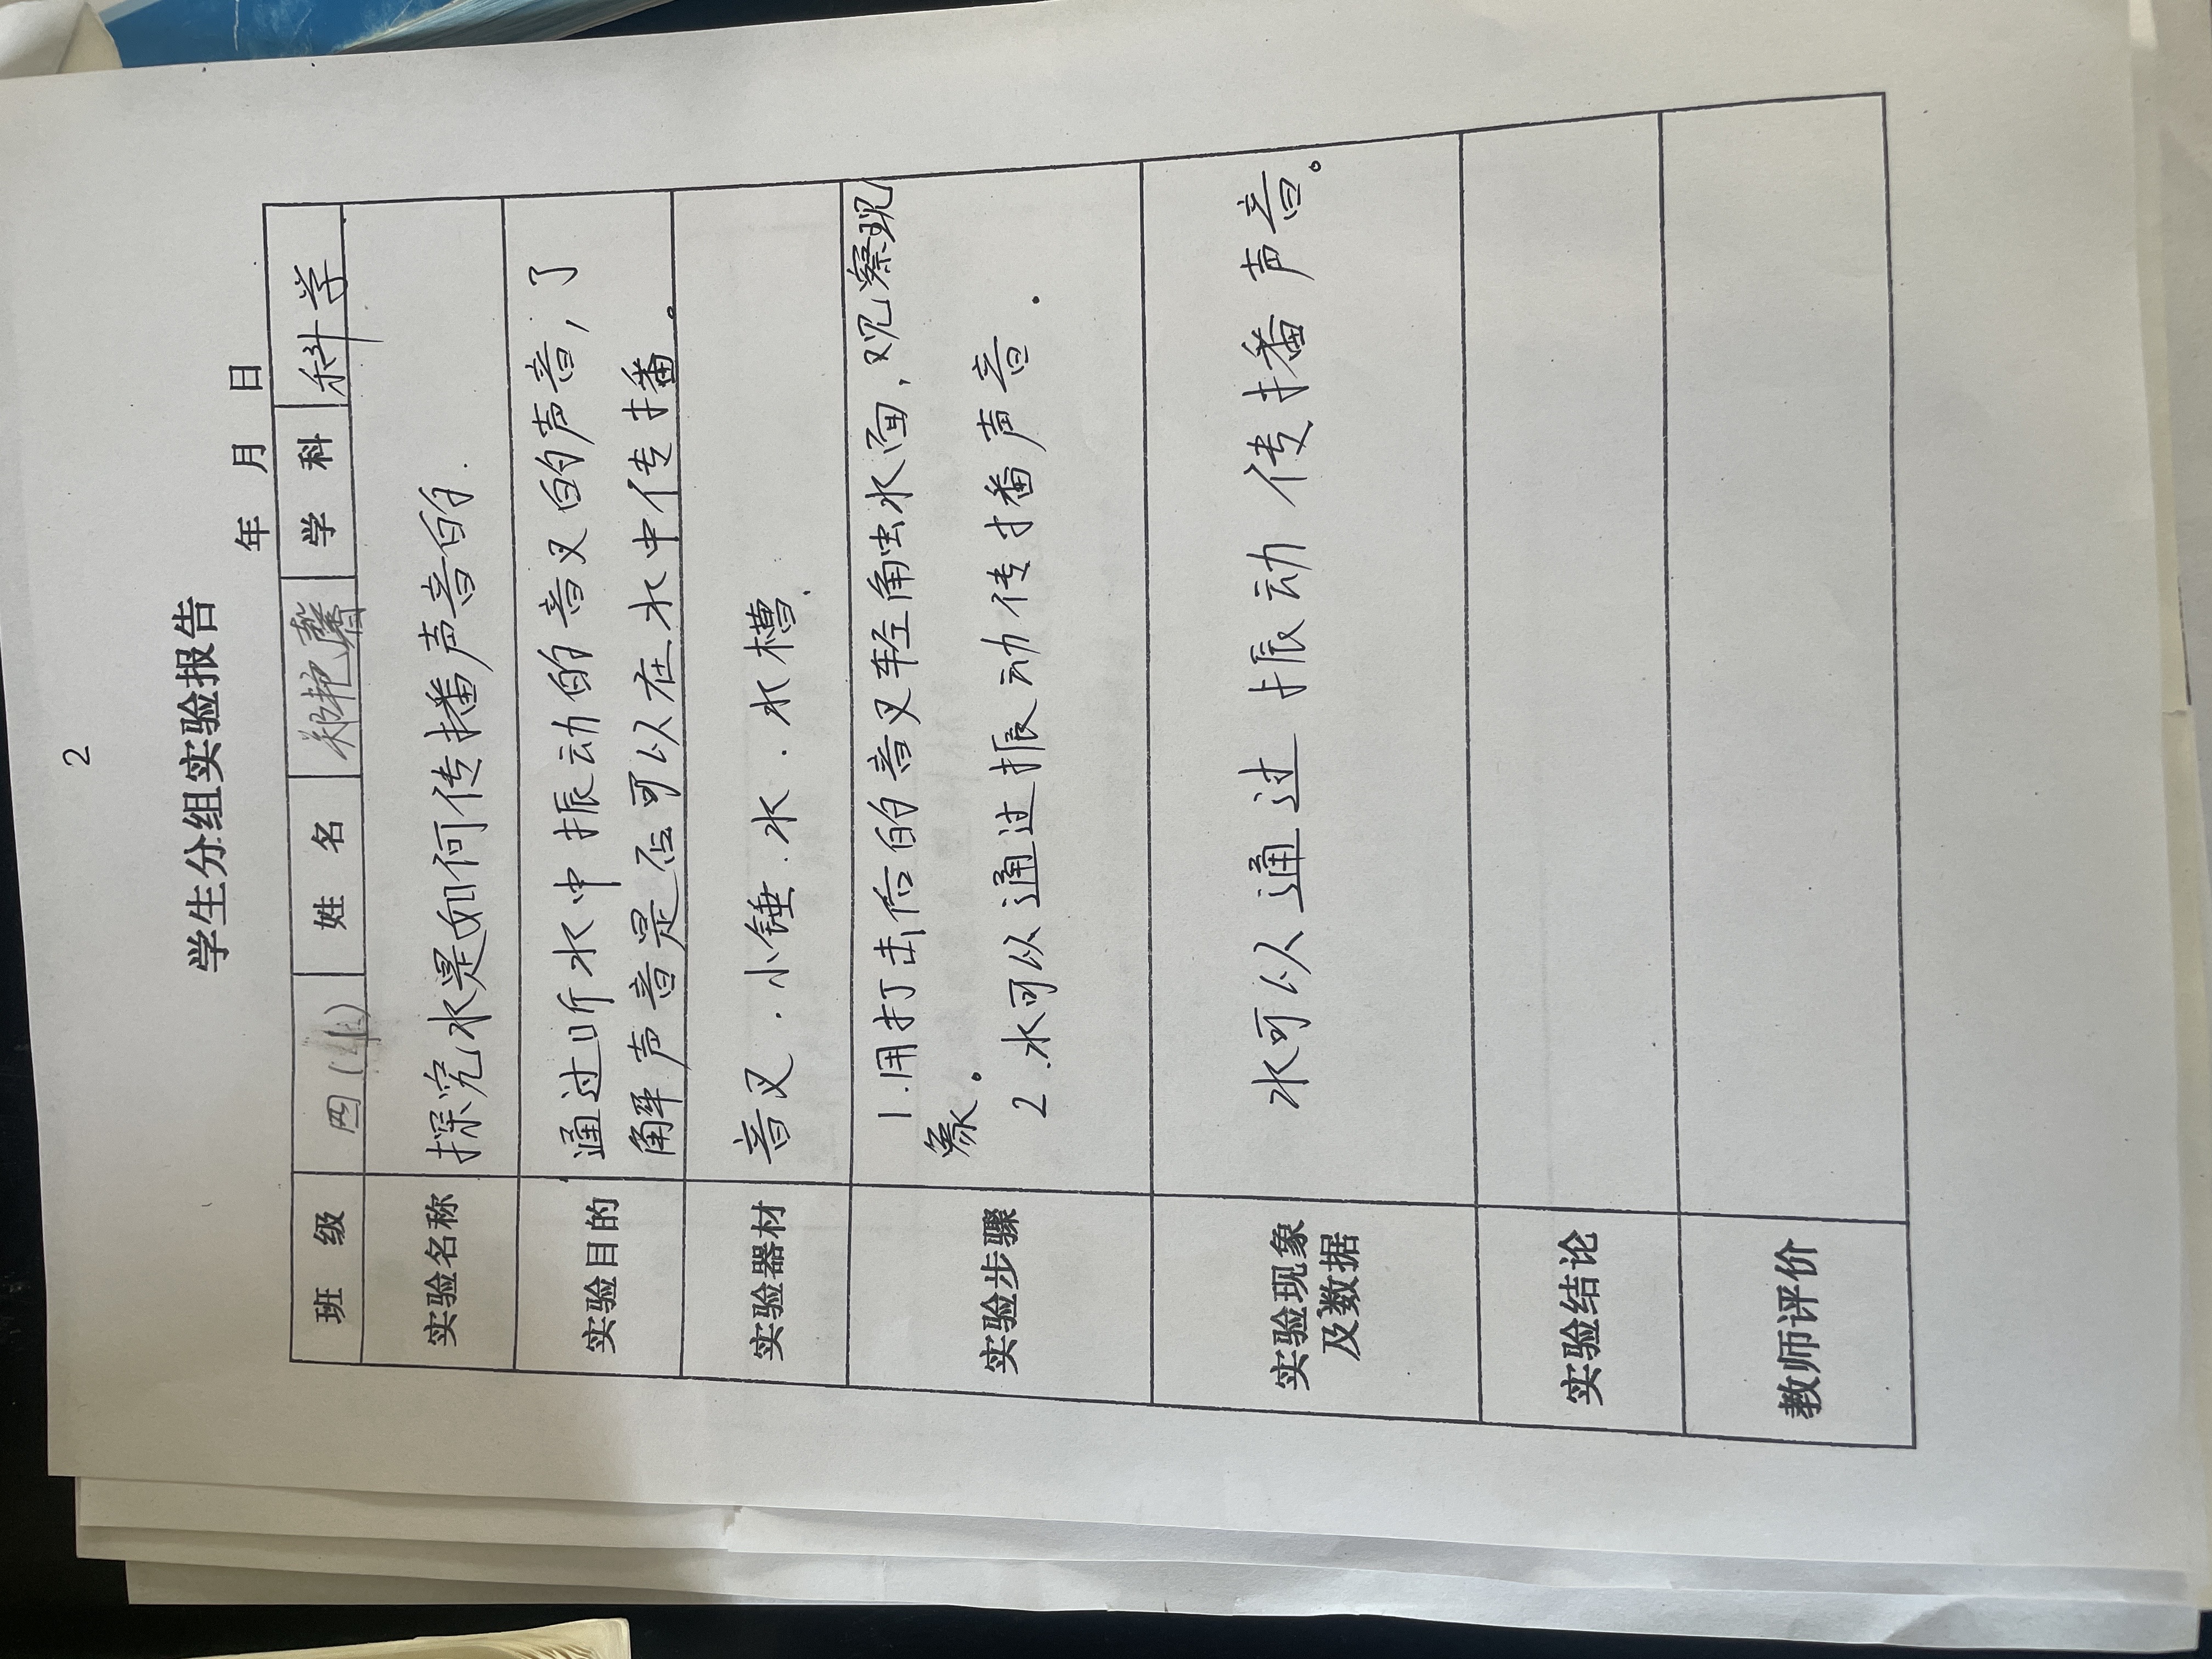 2
学生分组实验报告
年 月 日
班 级 四 姓 名 郑艳馨 学 科 科学
实验名称 探究水是如何传播声音的.
实验目的 通过听水中振动的音叉的声音,了
解声音是否可以在水中传播。
实验器材 音叉.小锤.水.水槽.
实验步骤 1.用打击后的音叉轻触水面,观察现
象。
2.水可以通过振动传播声音.
实验现象
及数据 水可以通过振动传播声音。
实验结论
教师评价